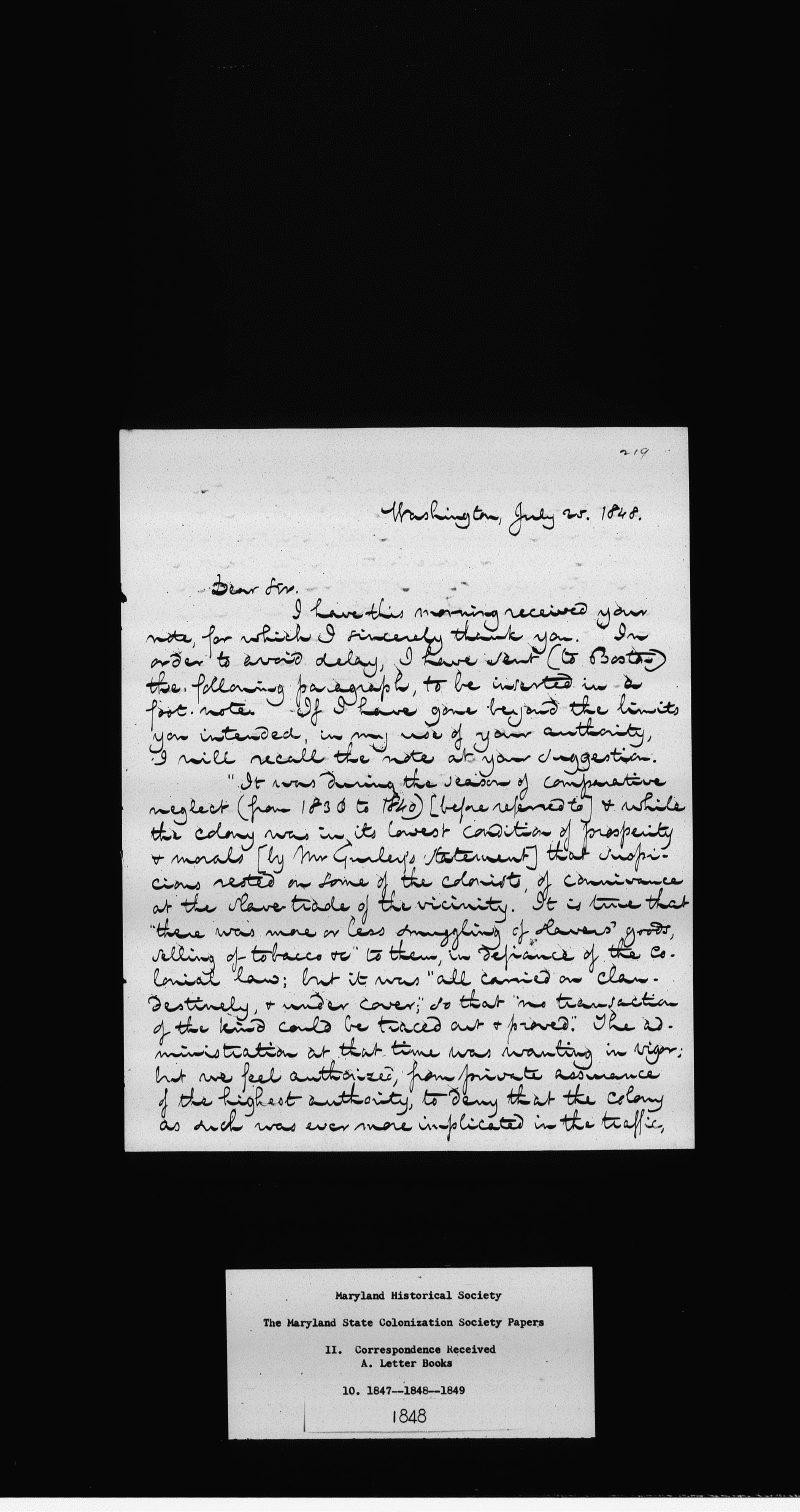 219
Washington, July 25. 1848.
Dear Sir.
I have this morning received your
note, for which I sincerely thank you. In
order to avoid delay, I have sent (to Boston)
the following paragraph, to be inserted in a
foot-note. If I have gone beyond the limits
you intended, in my use of your authority,
I will recall the note at your suggestion.
"It was during the season of comparative
neglect (from 1830 to 1840) [before referred to] & while
the colony was in its lowest condition of prosperity
& morals [by Mr Gurley's statement] that suspi-
cions rested on some of the colonists, of connivance
at the slave trade of the vicinity. It is true that
"there was more or less smuggling of slavers' goods,
selling of tobacco &c" to them, in defiance of the co-
lonial law; but it was "all carried on clan-
destinely, & under cover;" so that "no transaction
of the kind could be traced out & proved." The ad-
ministration at that time was wanting in vigor;
but we feel authorized, from private assurance
of the highest authority, to deny that the colony
as such was ever more implicated in the traffic,
Maryland Historical Society
The Maryland State Colonization Society Papers
II. Correspondence Received
A. Letter Books
10. 1847--1848--1849
1848